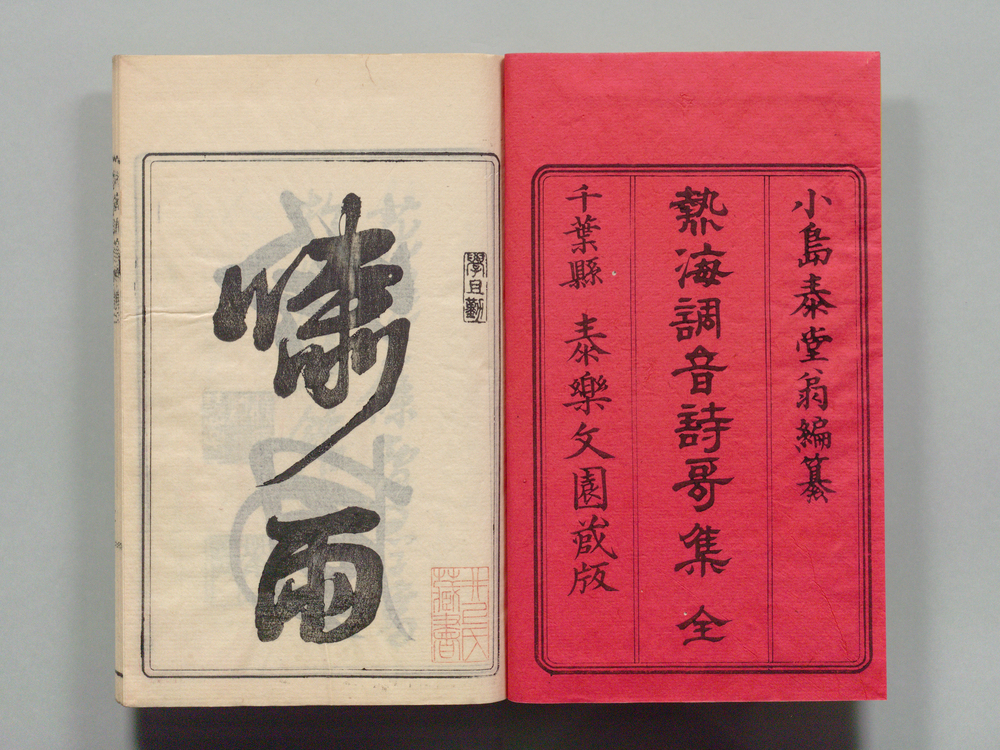 小島泰堂翁編纂
熱海調音詩哥集 全
千葉縣 泰樂文園蔵版
學且勤
嘯雨
井上氏
蔵書